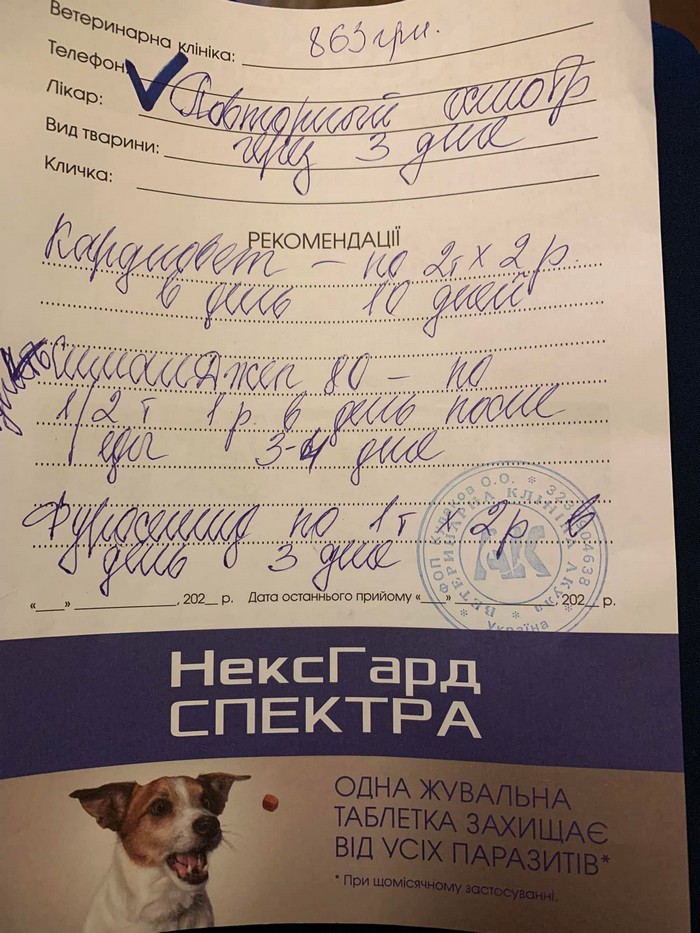 Ветеринарна клініка: 863 грн.
Телефон:
Лікар: ✓ Повторный осмотр
Вид тварини: через 3 дня
Кличка:
РЕКОМЕНДАЦІЇ
Кардиовет – по 2т х 2 р.
в день 10 дней
80 – по
1/2 т 1 р. в день после
еды 3-4 дня
Фуросемид по 1т х 2р в
день 3 дня
ФОП О.О. * ВЕТЕРИНАРНА КЛІНІКА Акула * Україна
АК
«___» ____________, 202__ р. Дата останнього прийому «___» ____________, 202__ р.
НексГард
СПЕКТРА
ОДНА ЖУВАЛЬНА
ТАБЛЕТКА ЗАХИЩАЄ
ВІД УСІХ ПАРАЗИТІВ*
* При щомісячному застосуванні.